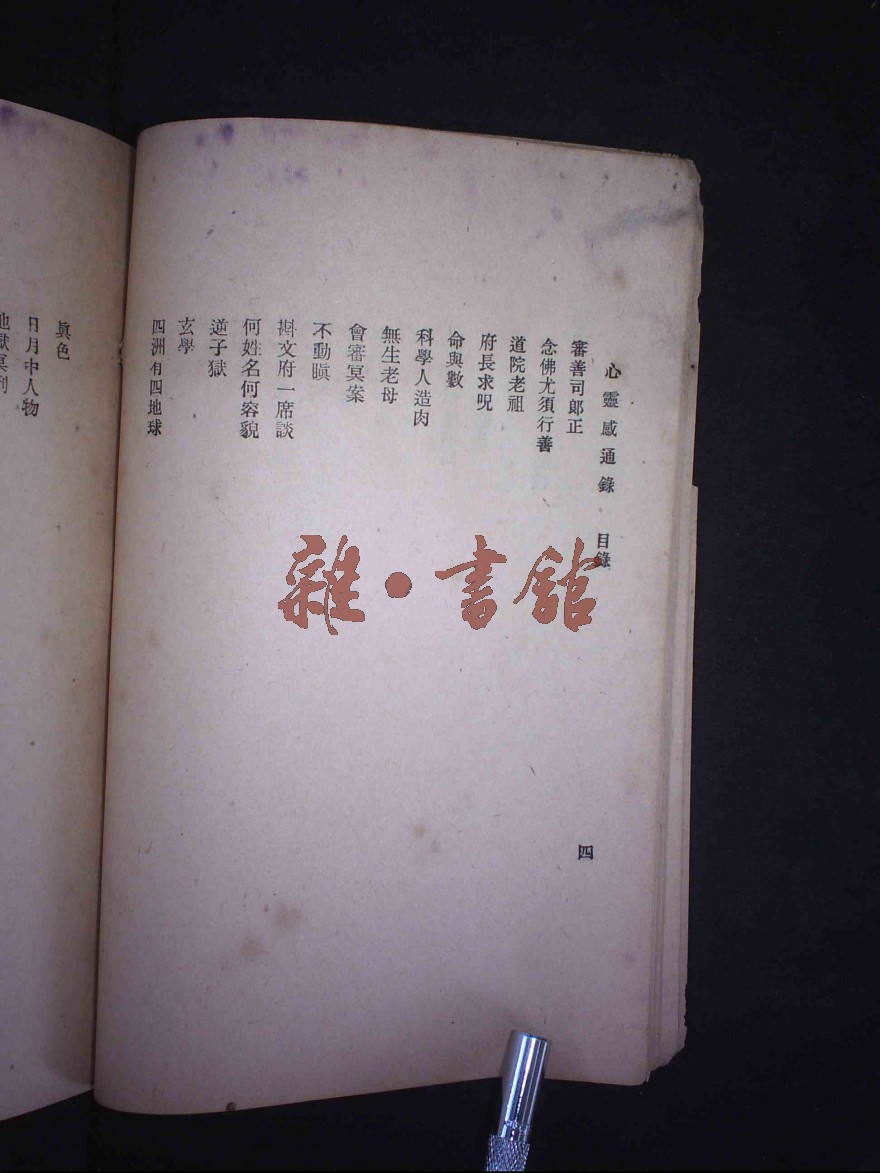 心靈感通錄 目錄
審善司郞正
念佛尤須行善
道院老祖
府長求呪
命與數
科學人造肉
無生老母
會審冥案
不動瞋
尌文府一席談
何姓名何容貌
逆子獄
玄學
四洲有四地球
四
眞色
日月中人物
地獄冥刑
雜•書館